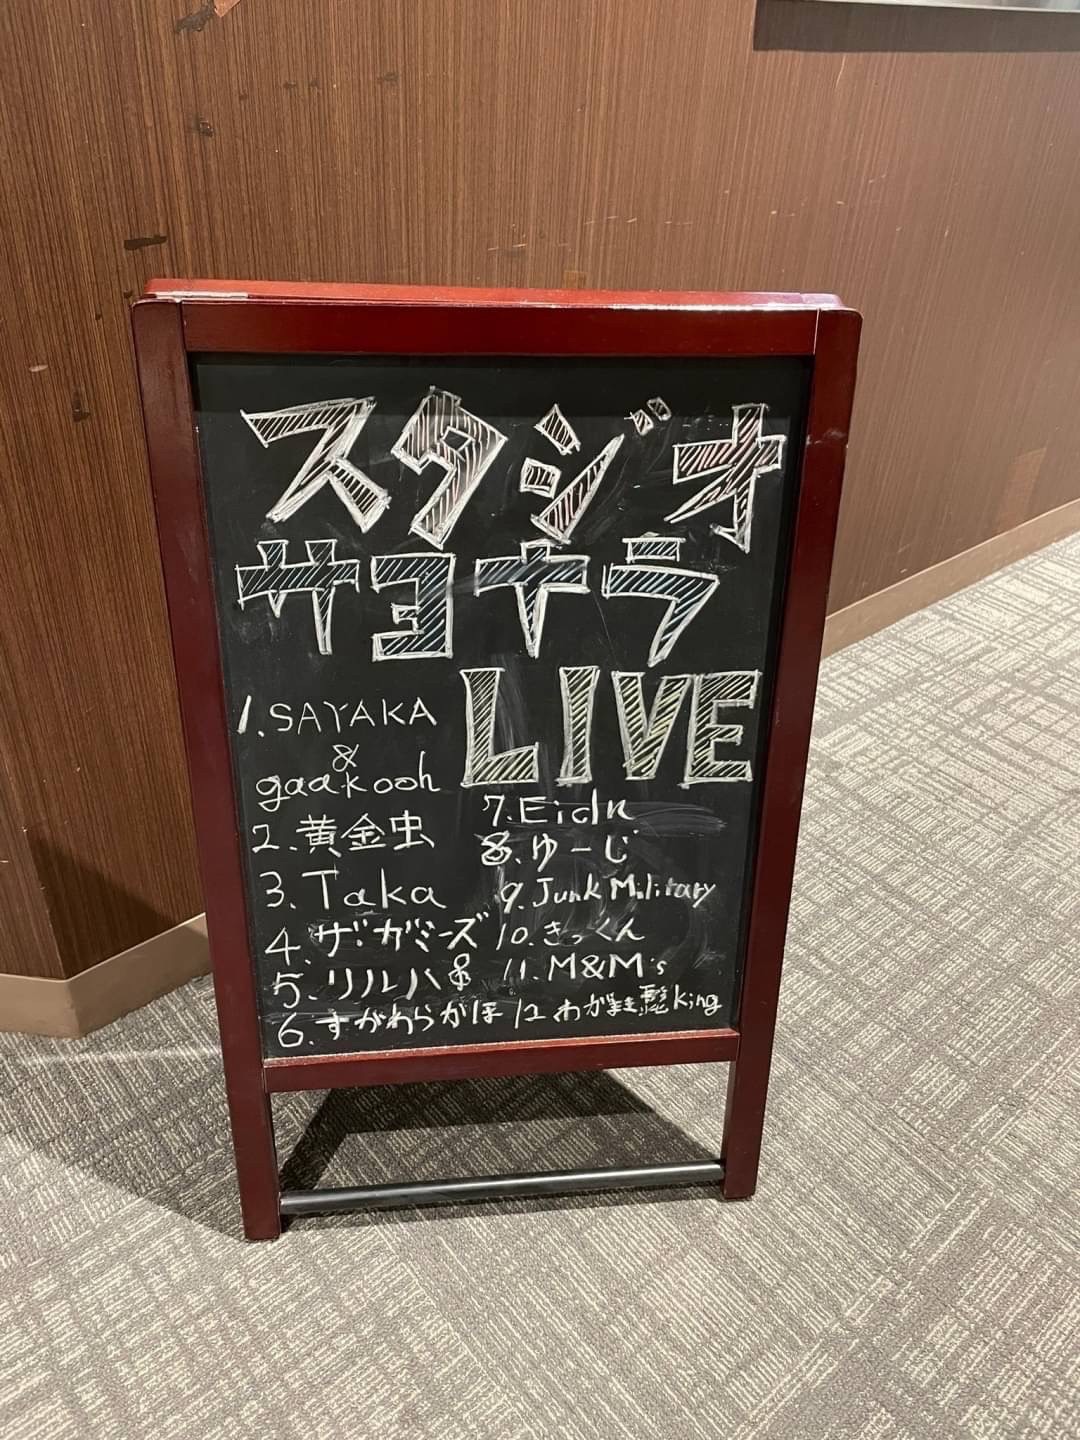 スタジオ
サヨナラ
LIVE
1. SAYAKA
&
gaakooh
2. 黄金虫
3. Taka
4. ザ・ガミーズ
5. リルハ
6. すがわらがほ
7. Eidn
8. ゆーじ
9. Junk Military
10. きっくん
11. M&M's
12. わがまま king